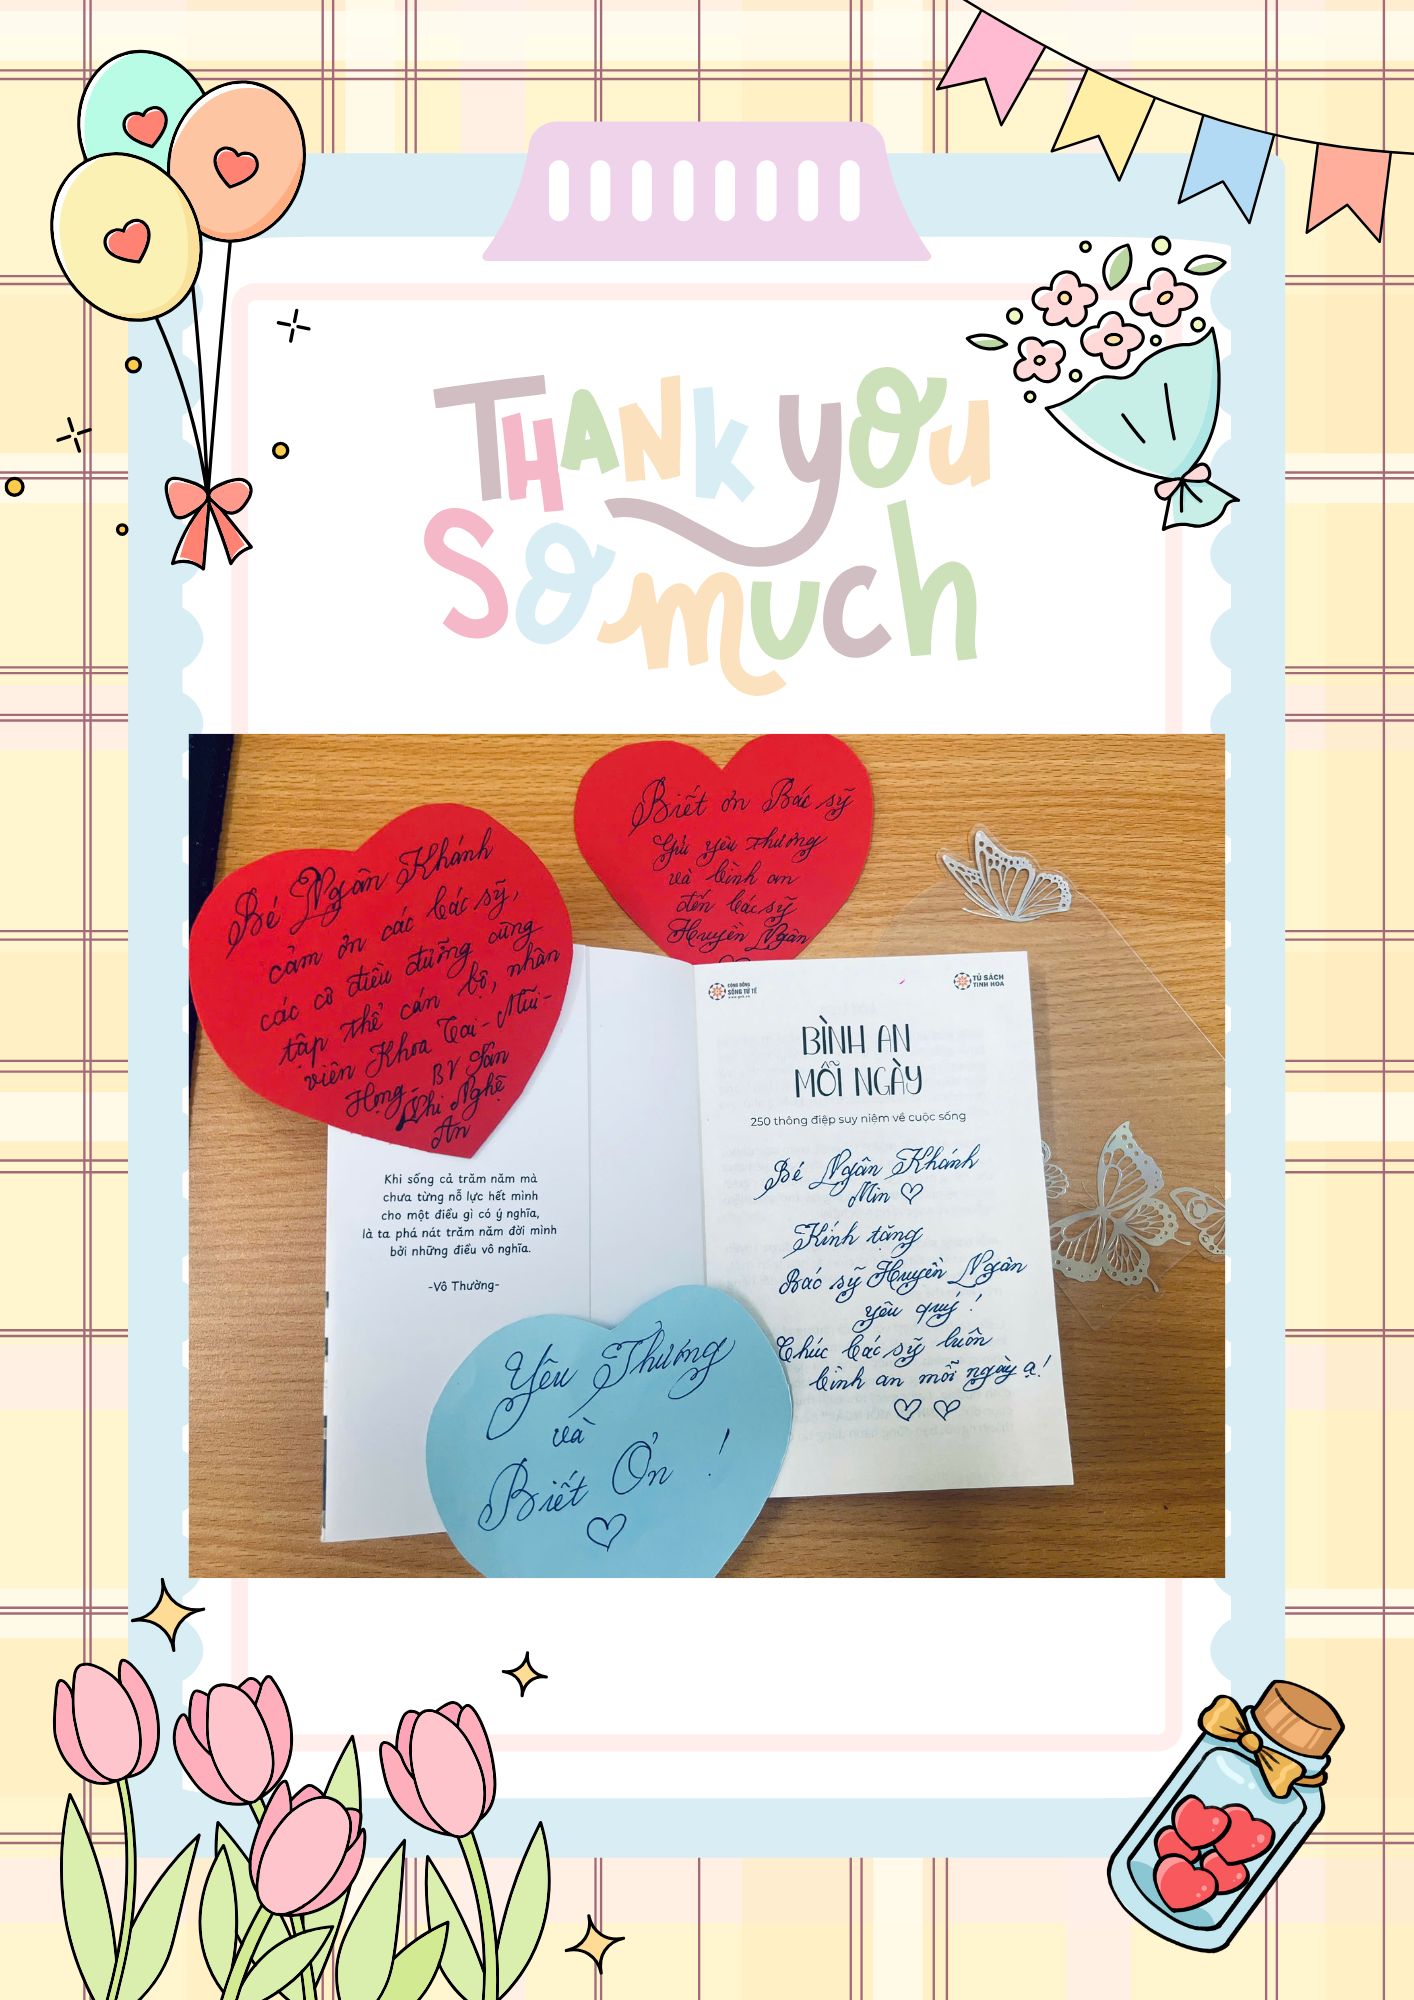 THANK YOU
SO MUCH
Bé Ngân Khánh
cảm ơn các bác sỹ,
các cô điều dưỡng cùng
tập thể cán bộ, nhân
viên Khoa Tai - Mũi -
Họng - BV Sản
Nhi Nghệ
An
Biết ơn Bác sỹ
Gửi yêu thương
và bình an
đến bác sỹ
Huyền Ngân
CỘNG ĐỒNG
SỐNG TỬ TẾ
TỦ SÁCH
TINH HOA
BÌNH AN
MỖI NGÀY
250 thông điệp suy niệm về cuộc sống
Bé Ngân Khánh
Min
Kính tặng
Bác sỹ Huyền Ngân
yêu quý!
Chúc bác sỹ luôn
bình an mỗi ngày ạ!
Khi sống cả trăm năm mà
chưa từng nỗ lực hết mình
cho một điều gì có ý nghĩa,
là ta phá nát trăm năm đời mình
bởi những điều vô nghĩa.
-Vô Thường-
Yêu Thương
và
Biết Ơn !